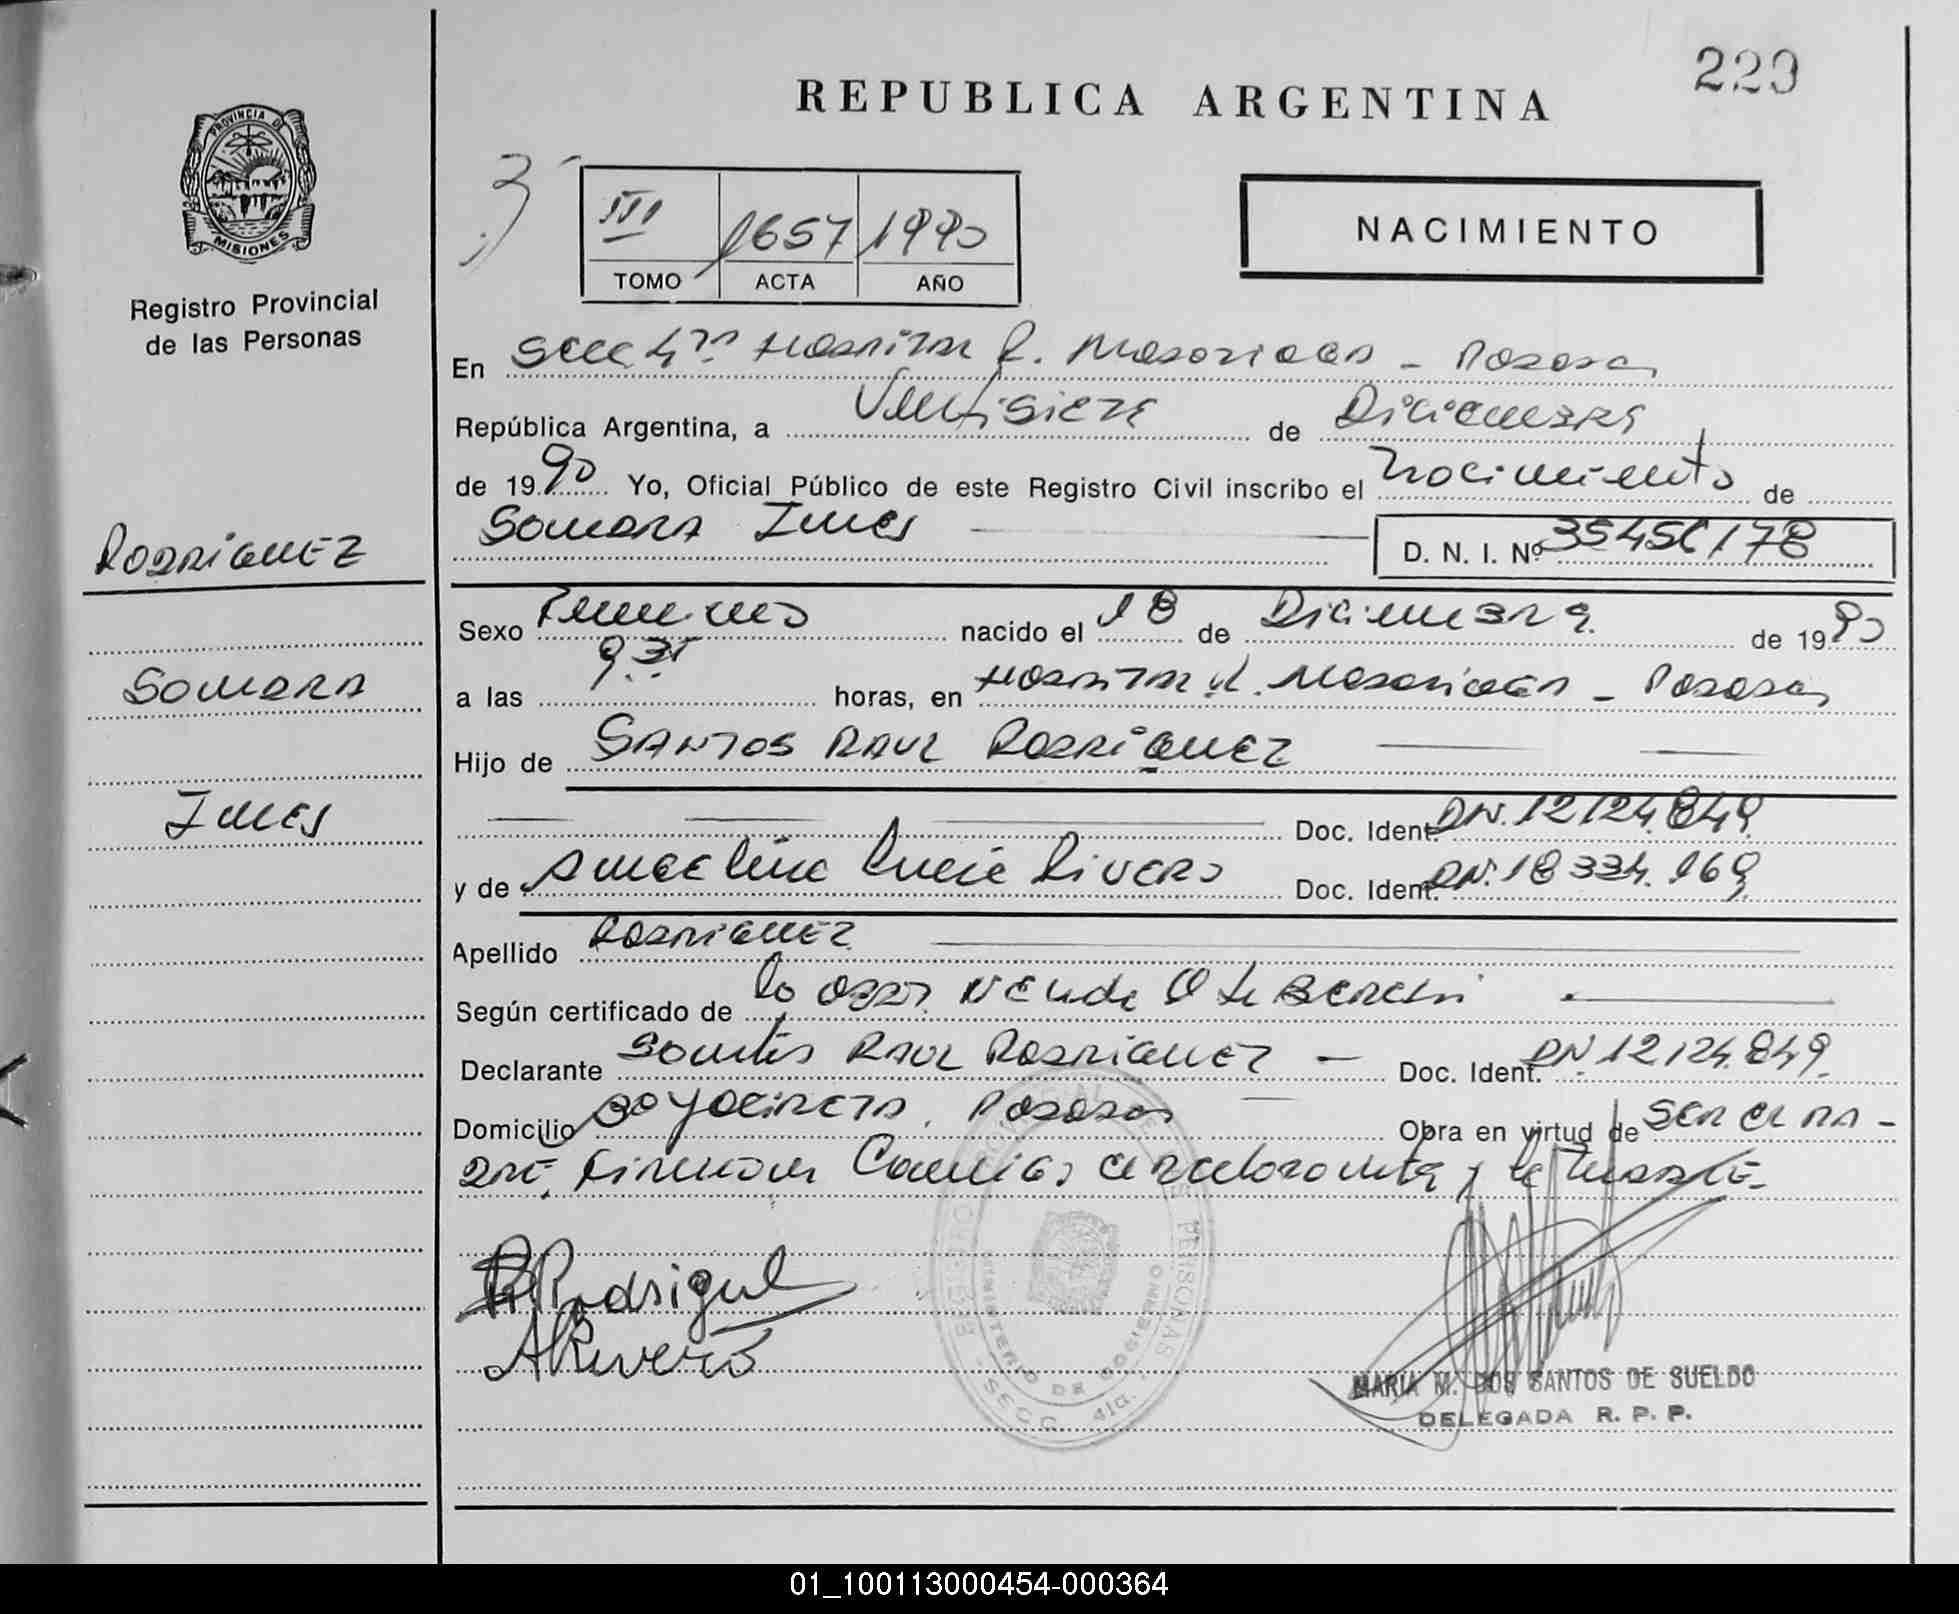 229
REPUBLICA ARGENTINA
PROVINCIA DE
MISIONES
Registro Provincial
de las Personas
3
III 1657 1990
TOMO ACTA AÑO
NACIMIENTO
En Secc 4ta Hospital R. Madariaga - Posadas
República Argentina, a Veintisiete de Diciembre
de 1990 Yo, Oficial Público de este Registro Civil inscribo el Nacimiento de
Sandra Ines D. N. I. Nº 35456178
RODRIGUEZ
Sandra
Ines
Sexo Femenino nacido el 18 de Diciembre de 1990
a las horas, en Hospital R. Madariaga - Posadas
Hijo de SANTOS RAUL RODRIGUEZ
Doc. Ident. DNI. 12124.849
y de Angelina Lucia Rivero Doc. Ident. DNI. 18334.169
Apellido RODRIGUEZ
Según certificado de la Obst.
Declarante Santos RAUL RODRIGUEZ - Doc. Ident. DNI 12124.849
Domicilio Posadas Obra en virtud de Ser el pa-
dre, Firman el declarante y la madre-
R Rodriguez
A Rivero
MINISTERIO DE GOBIERNO
SECC. 4ta.
MARIA M. DOS SANTOS DE SUELDO
DELEGADA R. P. P.
01_100113000454-000364